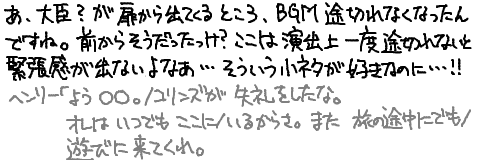 あ、大臣?が扉から出てくるところ、BGM途切れなくなったん
ですね。前からそうだったっけ?ここは演出上一度途切れないと
緊張感が出ないよなあ…そういう小ネタが好きなのに…!!
ヘンリー「よう○○。/コリンズが失礼をしたな。
オレはいつでもここに/いるからさ。また旅の途中にでも/
遊びに来てくれ。